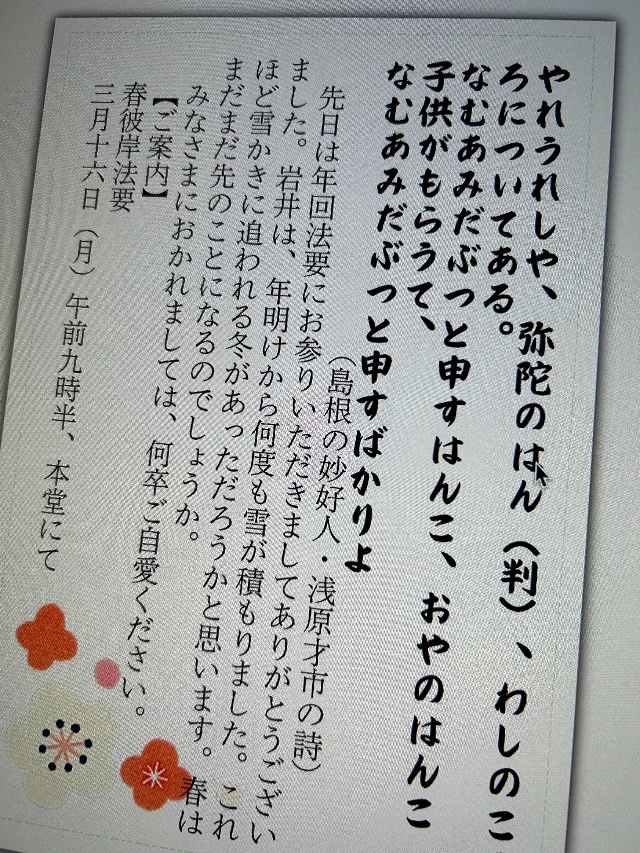 やれうれしや、弥陀のはん（判）、わしのこ
ろについてある。
なむあみだぶつと申すはんこ、おやのはんこ
子供がもらうて、
なむあみだぶつと申すばかりよ
（島根の妙好人・浅原才市の詩）
先日は年回法要にお参りいただきましてありがとうござい
ました。岩井は、年明けから何度も雪が積もりました。これ
ほど雪かきに追われる冬があっただろうかと思います。春は
まだまだ先のことになるのでしょうか。
みなさまにおかれましては、何卒ご自愛ください。
【ご案内】
春彼岸法要
三月十六日（月）午前九時半、本堂にて